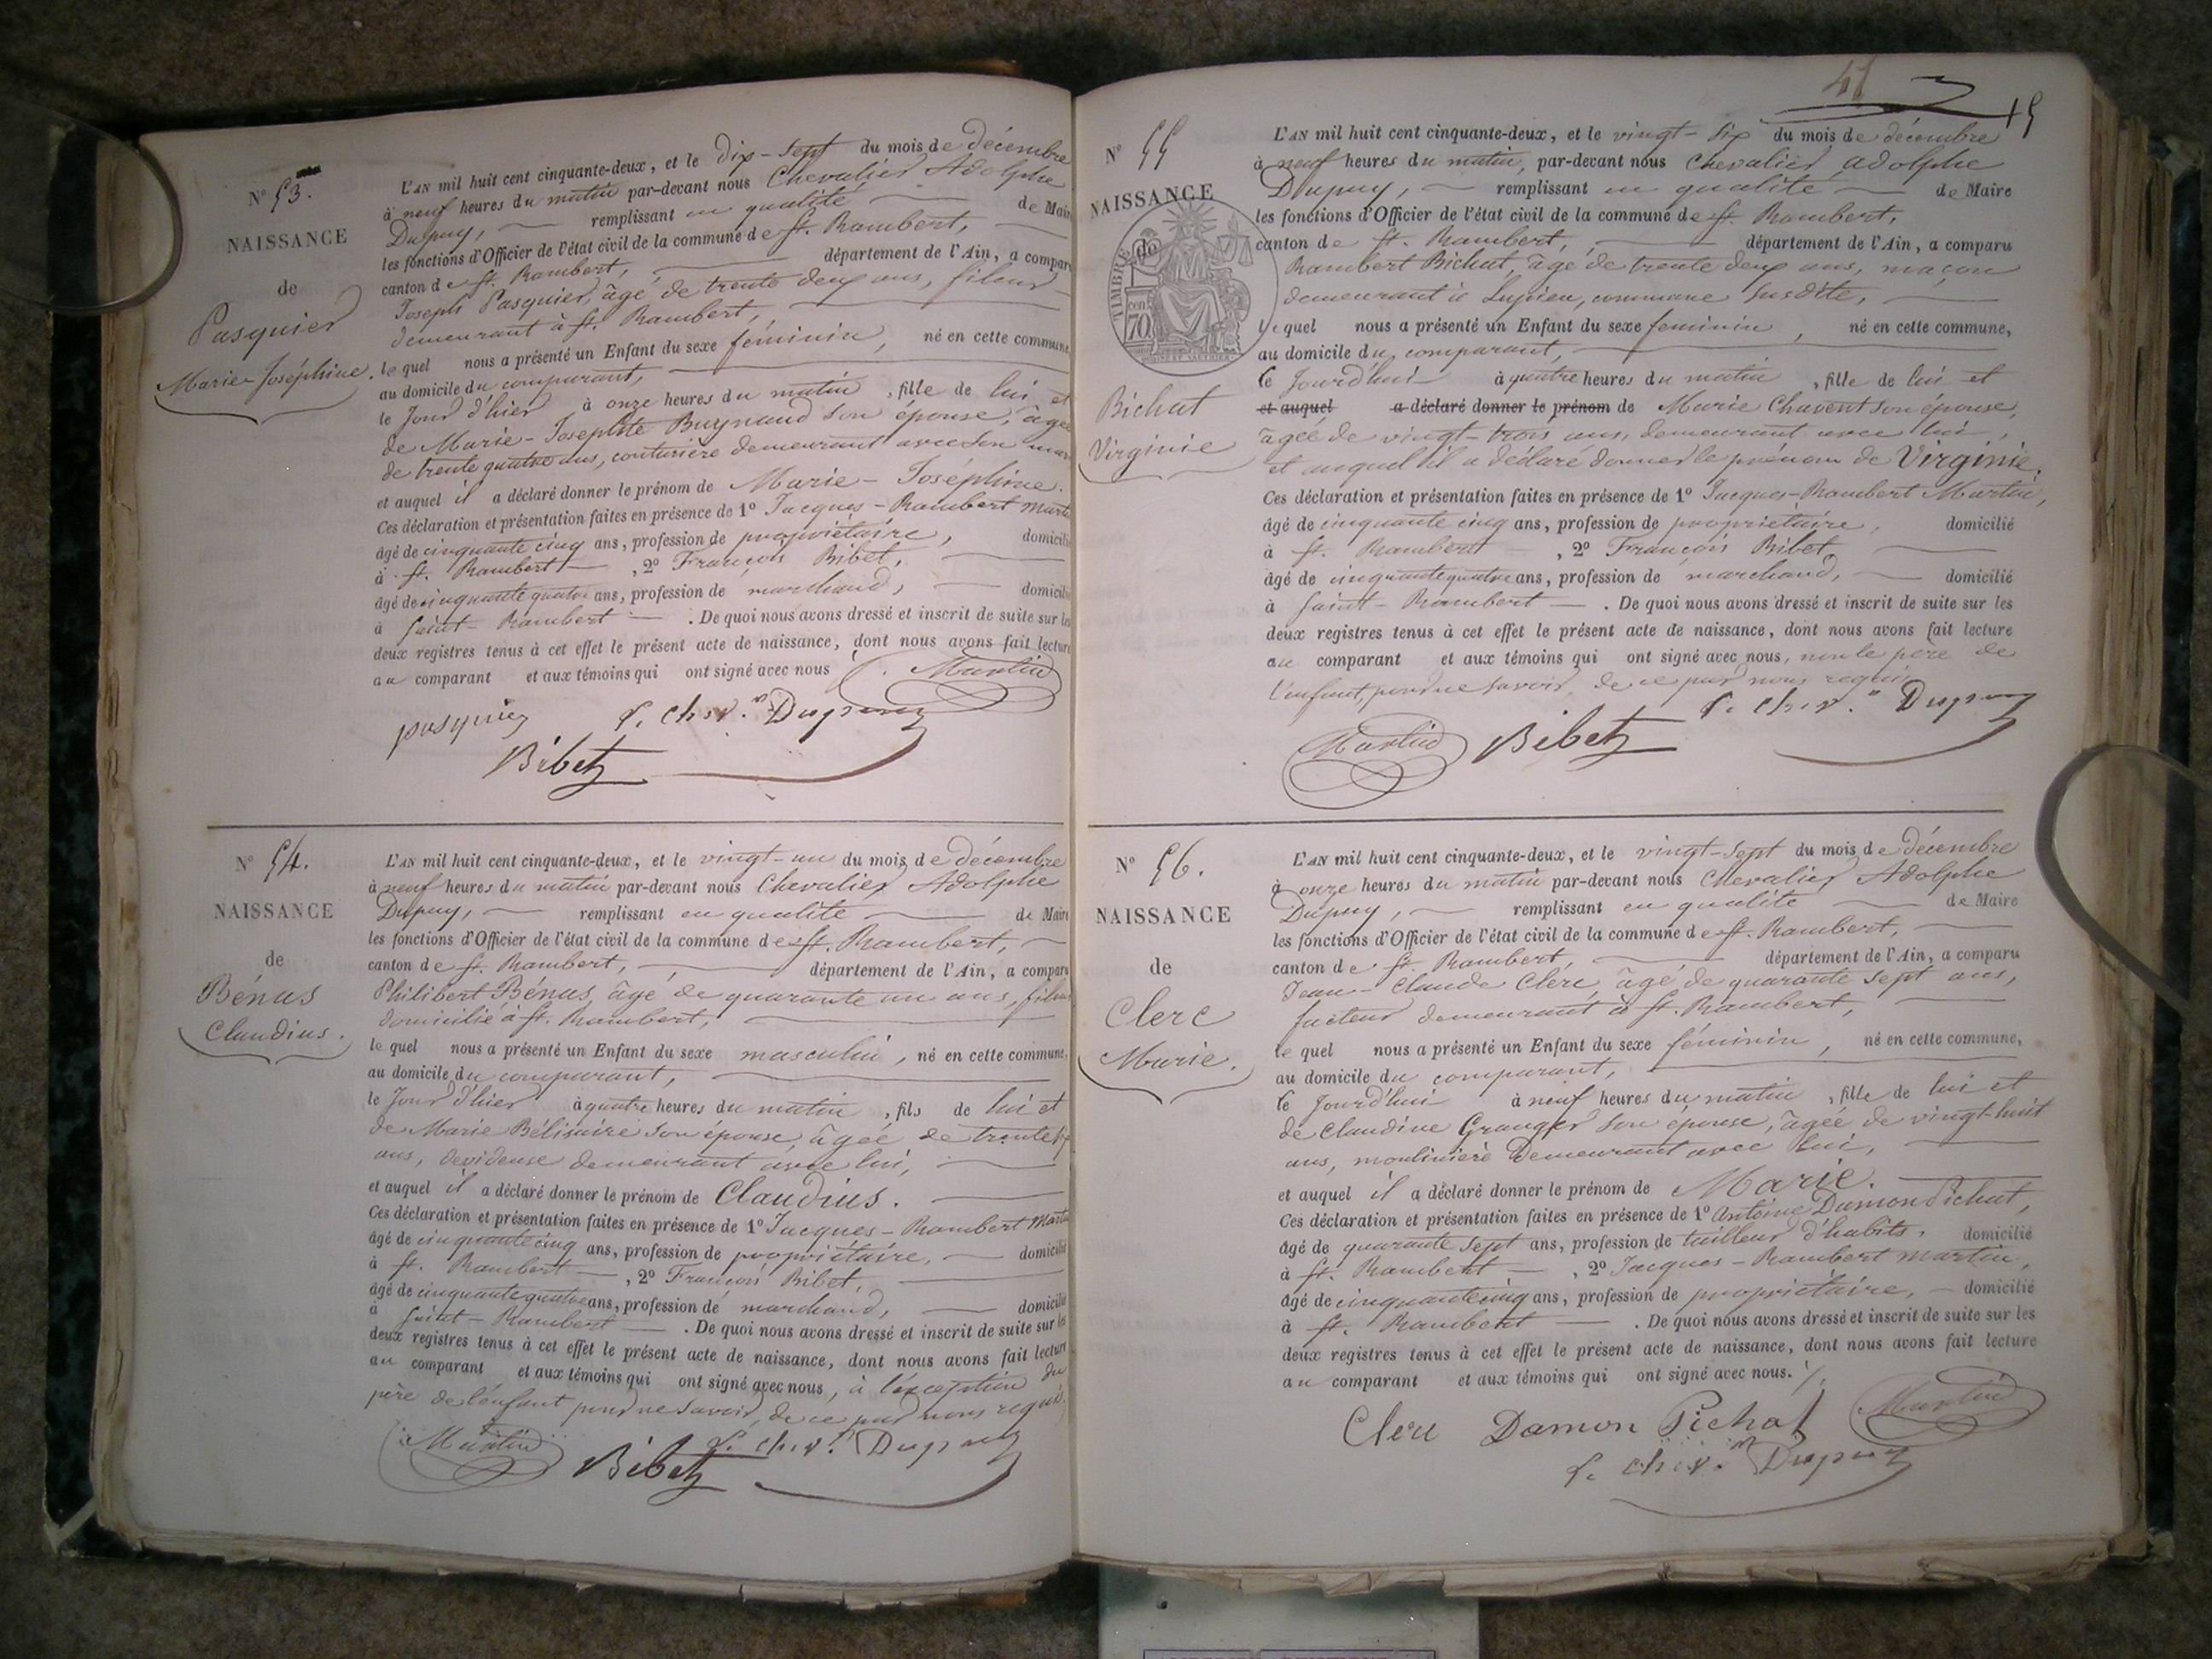 N° 53.
NAISSANCE
de
Pasquier
Marie-Joséphine.
L'AN mil huit cent cinquante-deux, et le dix-sept du mois de décembre
à neuf heures du matin par-devant nous Chevalier Adolphe
Dupuy, remplissant en qualité de Maire
les fonctions d'Officier de l'état civil de la commune de St. Rambert,
canton de St. Rambert, département de l'Ain, a comparu
Joseph Pasquier, âgé de trente deux ans, fileur
demeurant à St. Rambert,
lequel nous a présenté un Enfant du sexe féminin, né en cette commune,
au domicile du comparant,
le jour d'hier à onze heures du matin, fille de lui et
de Marie-Josephte Buynand son épouse, âgée
de trente quatre ans, couturière demeurant avec son mari
et auquel il a déclaré donner le prénom de Marie-Joséphine.
Ces déclaration et présentation faites en présence de 1° Jacques-Rambert Martin
âgé de cinquante cinq ans, profession de propriétaire, domicilié
à St. Rambert, 2° François Bibet,
âgé de cinquante quatre ans, profession de marchand, domicilié
à Saint-Rambert. De quoi nous avons dressé et inscrit de suite sur les
deux registres tenus à cet effet le présent acte de naissance, dont nous avons fait lecture
au comparant et aux témoins qui ont signé avec nous
Martin
pasquier L. chev. Dupuy
Bibet
N° 54.
NAISSANCE
de
Bénas
Claudius.
L'AN mil huit cent cinquante-deux, et le vingt-un du mois de décembre
à neuf heures du matin par-devant nous Chevalier Adolphe
Dupuy, remplissant en qualité de Maire
les fonctions d'Officier de l'état civil de la commune de St. Rambert,
canton de St. Rambert, département de l'Ain, a comparu
Philibert Bénas, âgé de quarante un ans, fileur
domicilié à St. Rambert,
lequel nous a présenté un Enfant du sexe masculin, né en cette commune,
au domicile du comparant,
le jour d'hier à quatre heures du matin, fils de lui et
de Marie Bélisaire son épouse, âgée de trente
ans, dévideuse demeurant avec lui,
et auquel il a déclaré donner le prénom de Claudius.
Ces déclaration et présentation faites en présence de 1° Jacques-Rambert Martin
âgé de cinquante cinq ans, profession de propriétaire, domicilié
à St. Rambert, 2° François Bibet,
âgé de cinquante quatre ans, profession de marchand, domicilié
à Saint-Rambert. De quoi nous avons dressé et inscrit de suite sur les
deux registres tenus à cet effet le présent acte de naissance, dont nous avons fait lecture
au comparant et aux témoins qui ont signé avec nous, à l'exception du
père de l'enfant pour ne savoir, de ce par nous requis.
Martin Bibet L. chev. Dupuy
41
N° 55
NAISSANCE
de
TIMBRE
cen
70
Bichat
Virginie
L'AN mil huit cent cinquante-deux, et le vingt-six du mois de décembre
à neuf heures du matin, par-devant nous Chevalier Adolphe
Dupuy, remplissant en qualité de Maire
les fonctions d'Officier de l'état civil de la commune de St. Rambert,
canton de St. Rambert, département de l'Ain, a comparu
Rambert Bichat, âgé de trente deux ans, maçon
demeurant à Lupieu, commune susdite,
lequel nous a présenté un Enfant du sexe feminin, né en cette commune,
au domicile du comparant,
le jourd'hui à quatre heures du matin, fille de lui et
et auquel a déclaré donner le prénom de Marie Chavent son épouse,
âgée de vingt-trois ans, demeurant avec lui,
et auquel il a déclaré donner le prénom de Virginie.
Ces déclaration et présentation faites en présence de 1° Jacques-Rambert Martin,
âgé de cinquante cinq ans, profession de propriétaire, domicilié
à St. Rambert, 2° François Bibet,
âgé de cinquante quatre ans, profession de marchand, domicilié
à Saint-Rambert. De quoi nous avons dressé et inscrit de suite sur les
deux registres tenus à cet effet le présent acte de naissance, dont nous avons fait lecture
au comparant et aux témoins qui ont signé avec nous, non le père de
l'enfant, pour ne savoir, de ce par nous requis
Martin Bibet L. chev. Dupuy
N° 56.
NAISSANCE
de
Clerc
Marie.
L'AN mil huit cent cinquante-deux, et le vingt-sept du mois de décembre
à onze heures du matin par-devant nous Chevalier Adolphe
Dupuy, remplissant en qualité de Maire
les fonctions d'Officier de l'état civil de la commune de St. Rambert,
canton de St. Rambert, département de l'Ain, a comparu
Jean-Claude Clerc, âgé de quarante sept ans,
facteur demeurant à St. Rambert,
lequel nous a présenté un Enfant du sexe féminin, né en cette commune,
au domicile du comparant,
le jourd'hui à neuf heures du matin, fille de lui et
de Claudine Granger son épouse, âgée de vingt-huit
ans, moulinière demeurant avec lui,
et auquel il a déclaré donner le prénom de Marie.
Ces déclaration et présentation faites en présence de 1° Antoine Damon Pichat,
âgé de quarante sept ans, profession de tailleur d'habits, domicilié
à St. Rambert, 2° Jacques-Rambert Martin,
âgé de cinquante cinq ans, profession de propriétaire, domicilié
à St. Rambert. De quoi nous avons dressé et inscrit de suite sur les
deux registres tenus à cet effet le présent acte de naissance, dont nous avons fait lecture
au comparant et aux témoins qui ont signé avec nous.
Clerc Damon Pichat Martin
L. chev. Dupuy